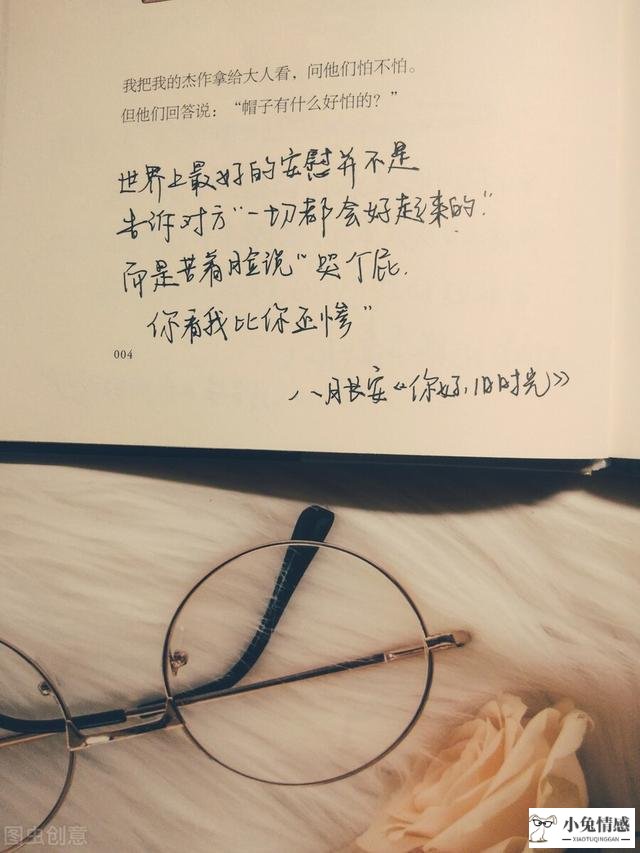 我把我的杰作拿给大人看，问他们怕不怕。
但他们回答说：“帽子有什么好怕的？”
世界上最好的安慰并不是
告诉对方“一切都会好起来的”
而是苦着脸说“哭个屁，
你看我比你还惨”
004
八月长安《你好，旧时光》
图虫创意
小兔情感
XIAOTUQINGGAN